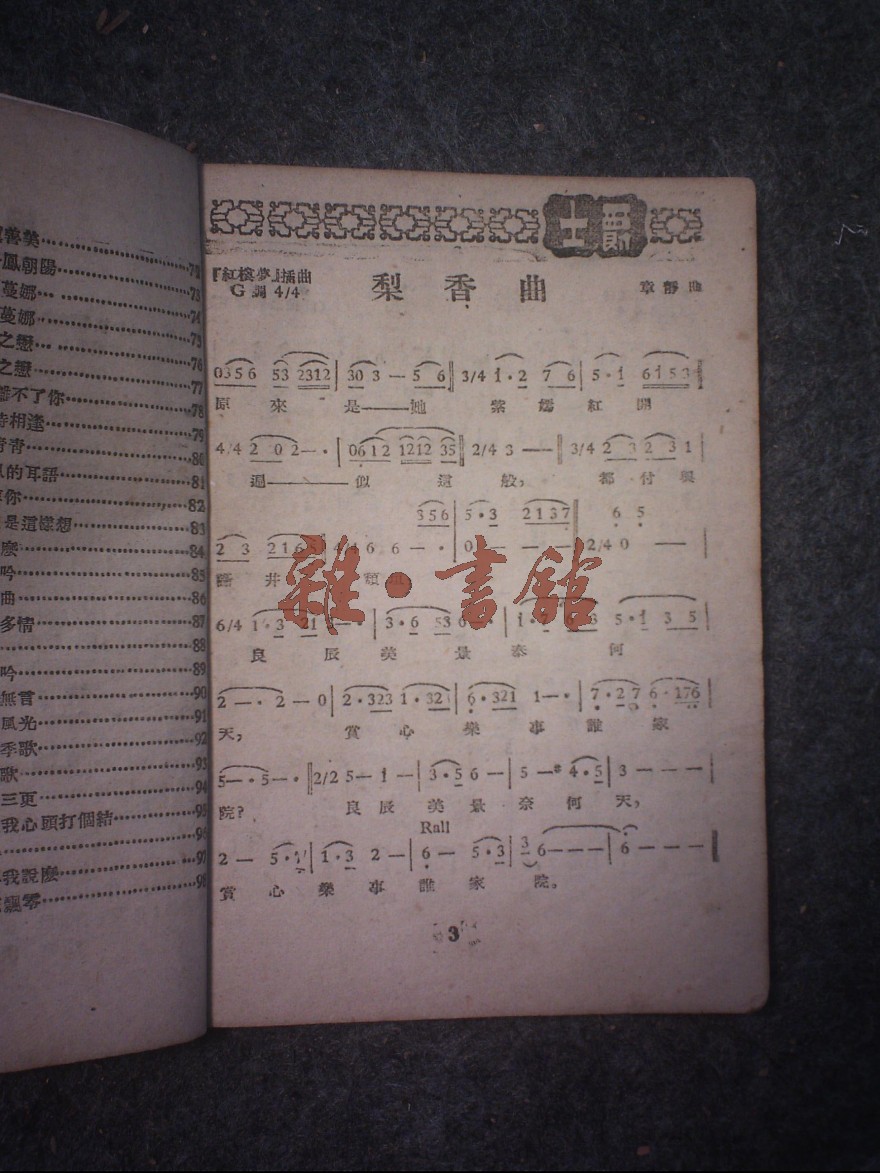 鳳朝陽………73
蔓娜………74
蔓娜………75
之戀………76
之戀………77
不了你………78
相逢………79
青青………80
的耳語………81
你………82
是這樣想………83
麼………84
吟………85
曲………86
多情………87
………88
吟………89
無言………90
風光………91
季歌………92
歌………93
三更………94
我心頭打個結………95
………96
我說麼………97
飄零………98
爵士
『紅樓夢』插曲
G調 4/4
梨香曲
章靜 曲
0356 53 2312 | 30 3 — 5 6 ‖ 3/4 1·2 7 6 | 5·1 6153
原來是——她紫嫣紅開
4/4 2 0 2—· | 0612 1212 35 ‖ 2/4 3 —— ‖ 3/4 2 3 2 3 1
遍——似這般,都付與
356 | 5·3 2137 ‖ 6 5
2 3 216 4/4 6 6 —· | 0 —— 2/4 0 —— |
井
雜·書館
6/4
良辰美景奈何
2—·2—0 | 2·323 1·321 | 6·321 1—· | 7·27 6·176 |
天,賞心樂事誰家
5—·5—· ‖ 2/2 5—1— | 3·5 6— | 5—#4·5 | 3———
院?良辰美景奈何天,
Rall
2— 5· | 1·3 2— | 6— 5·3 | 3 6——— | 6———
賞心樂事誰家院。
3